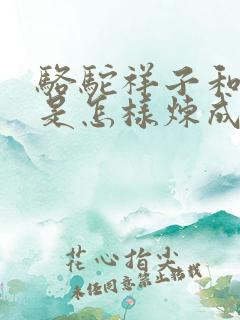 駱駝祥子和
是怎樣煉成
花心指尖
未经同意禁止转载